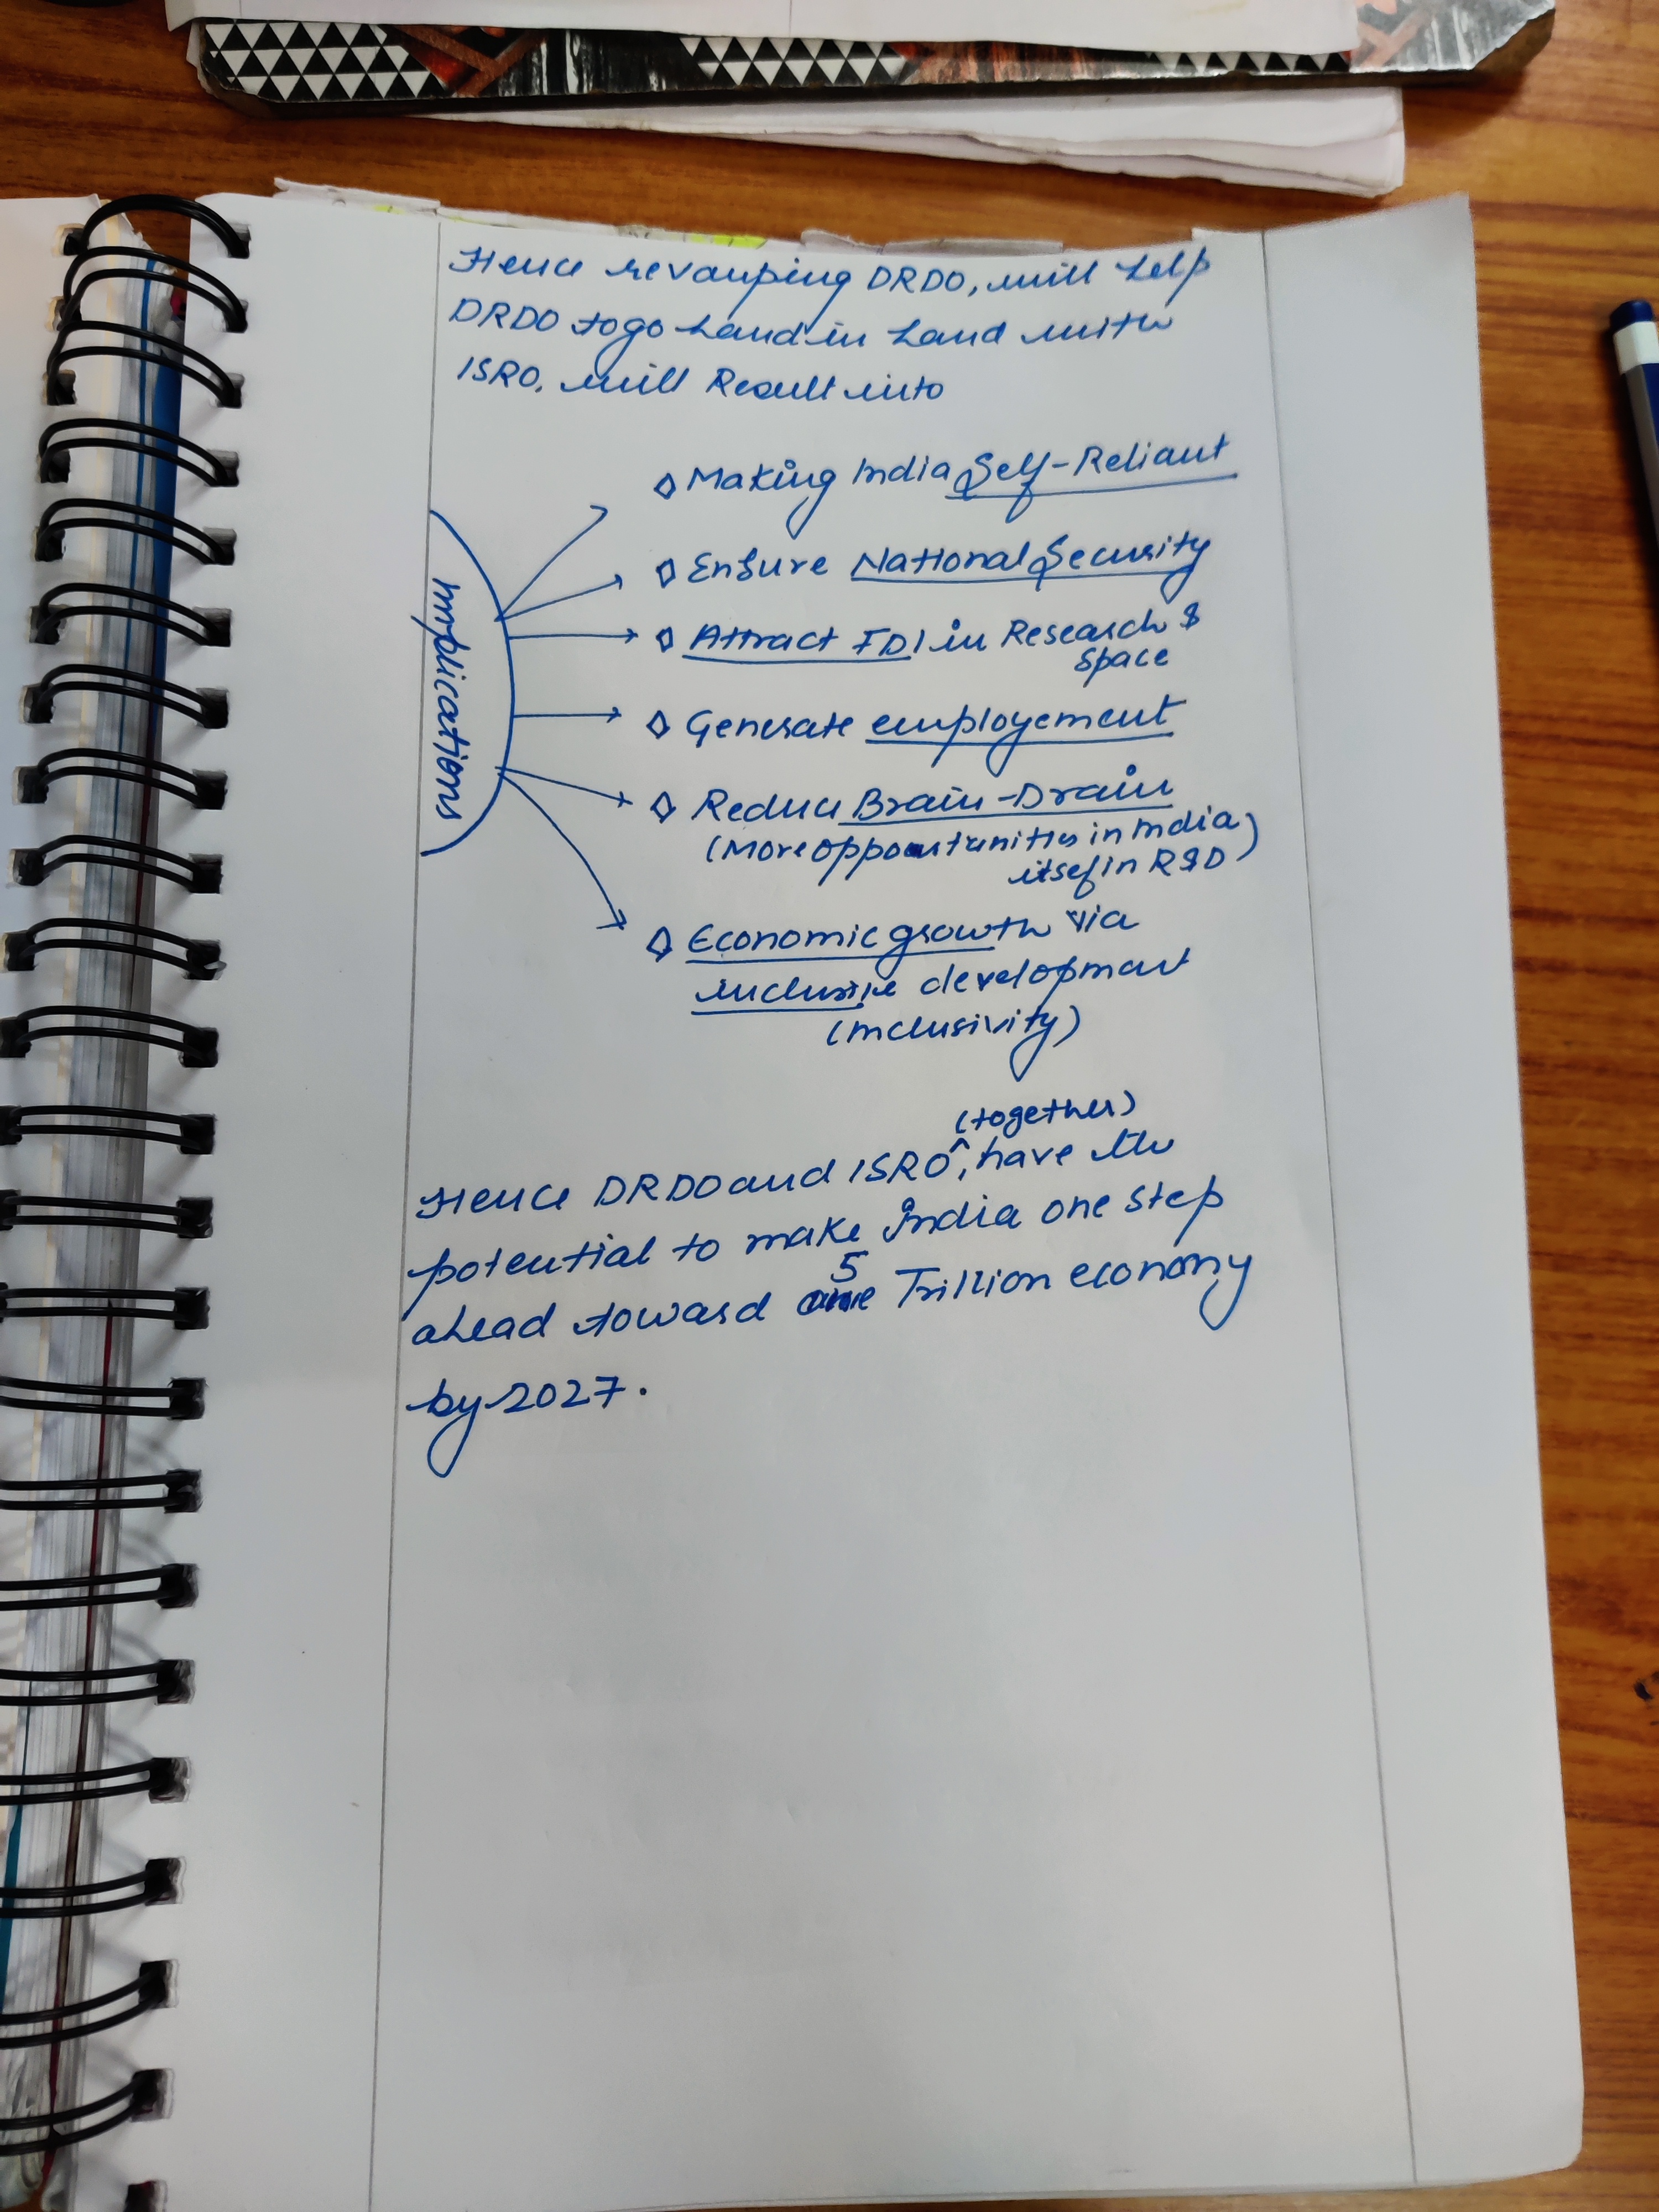 Hence revamping DRDO, will help
DRDO to go hand in hand with
ISRO, will Result into
Implications
◇ Making India Self-Reliant
◇ Ensure National Security
◇ Attract FDI in Research &
Space
◇ Generate employement
◇ Reduce Brain-Drain
(More opportunities in India
itsef in R&D)
◇ Economic growth via
inclusive development
(Inclusivity)
(together)
Hence DRDO and ISRO^, have the
potential to make India one step
ahead toward 5 Trillion economy
by 2027.